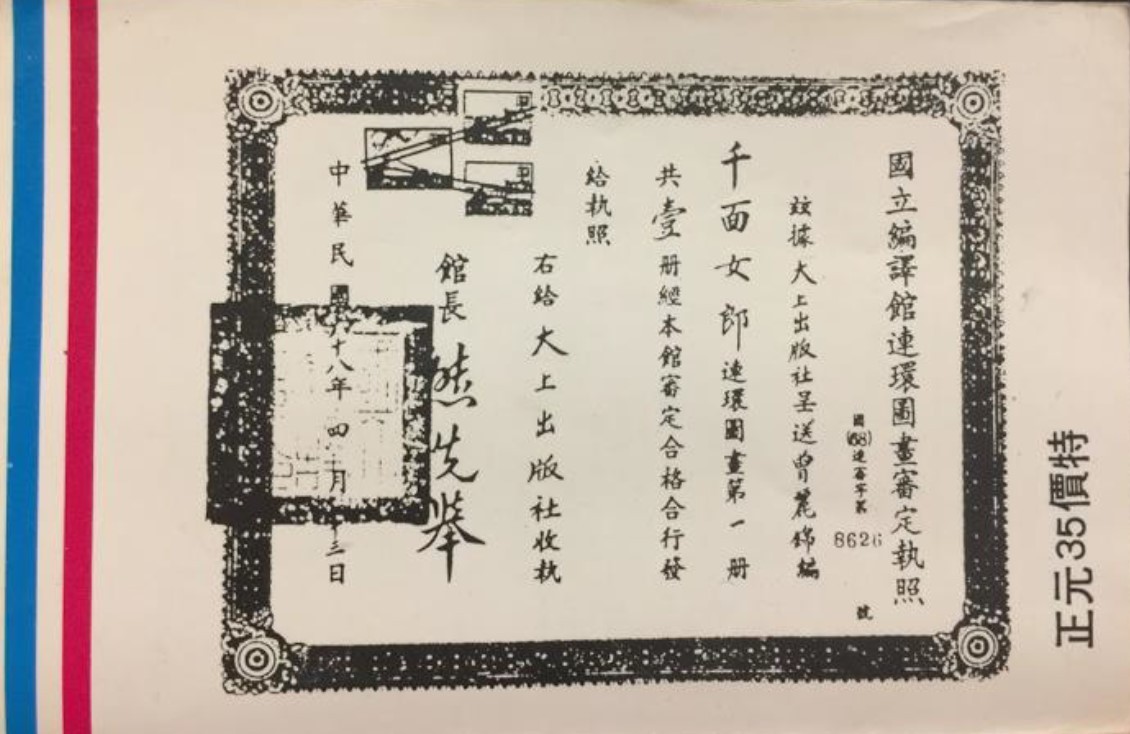 國立編譯館連環圖畫審定執照
國(68)連審字第 8626 號
茲據大上出版社呈送曾麗錦編
千面女郎連環圖畫第一册
共壹册經本館審定合格合行發
給執照
右給大上出版社收執
館長 熊先舉
中華民國六十八年四月十三日
特價35元正